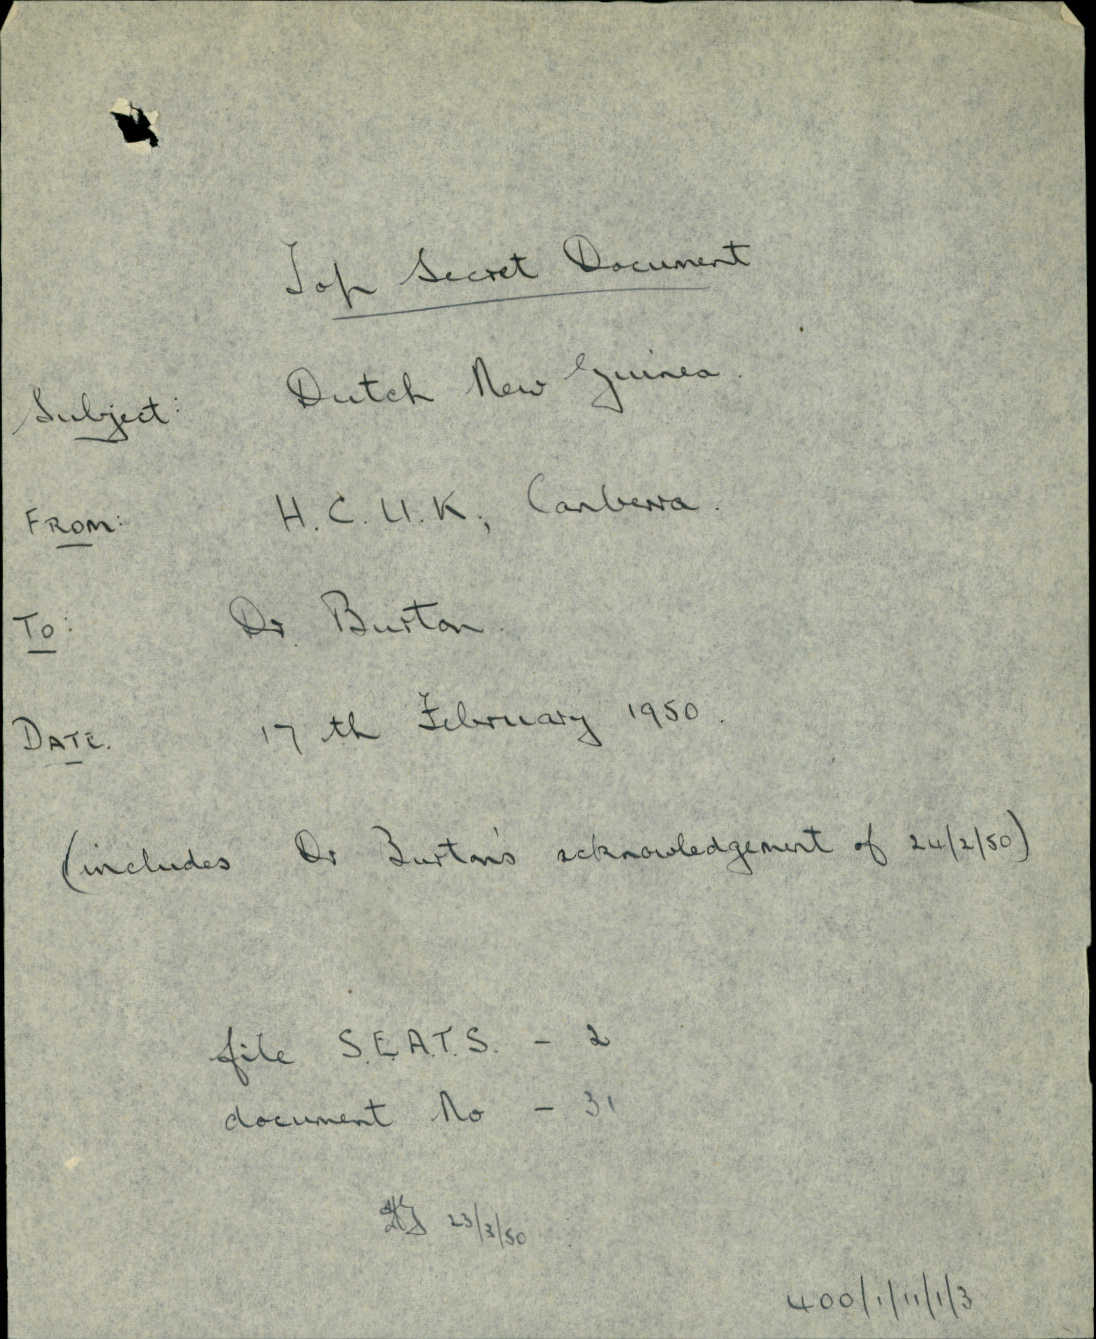 Top Secret Document
Subject: Dutch New Guinea.
FROM: H.C.U.K., Canberra.
To: Dr. Burton.
DATE. 17 th February 1950.
(includes Dr Burton's acknowledgement of 24/2/50)
file S.E.A.T.S. - 2
document No - 31
23/3/50
400/1/11/1/3